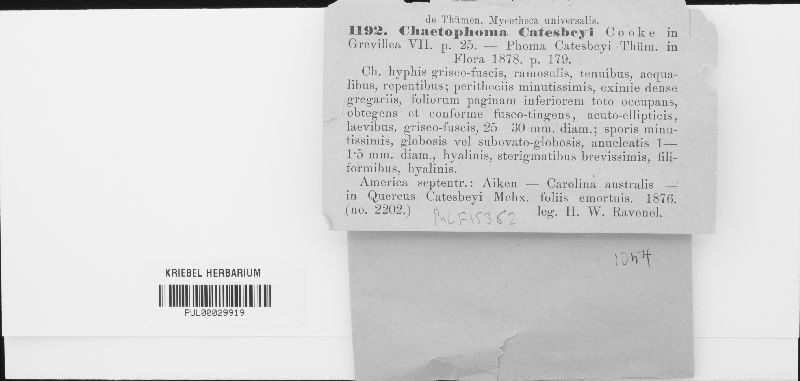 de Thümen, Mycotheca universalis.
1192. Chaetophoma Catesbeyi Cooke in
Grevillea VII. p. 25. — Phoma Catesbeyi Thüm. in
Flora 1878. p. 179.
Ch. hyphis griseo-fuscis, ramosulis, tenuibus, aequa-
libus, repentibus; peritheciis minutissimis, eximie dense
gregariis, foliorum paginam inferiorem toto occupans,
obtegens et conforme fusco-tingens, acuto-ellipticis,
laevibus, griseo-fuscis, 25—30 mm. diam.; sporis minu-
tissimis, globosis vel subovato-globosis, anucleatis 1—
1·5 mm. diam., hyalinis, sterigmatibus brevissimis, fili-
formibus, hyalinis.
America septentr.: Aiken — Carolina australis —
in Quercus Catesbeyi Mchx. foliis emortuis. 1876.
(no. 2202.) PULF15362 leg. H. W. Ravenel.
1054
KRIEBEL HERBARIUM
PUL00029919